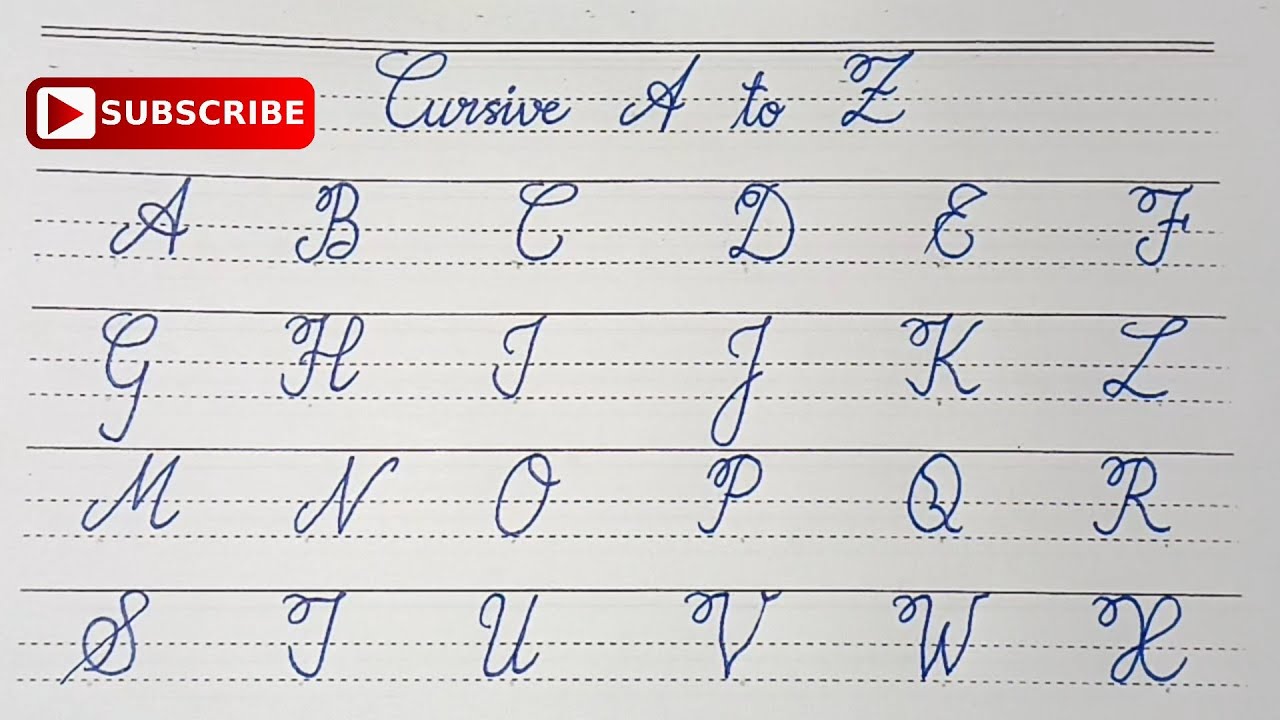 SUBSCRIBE
Cursive A to Z
A B C D E F
G H I J K L
M N O P Q R
S T U V W X